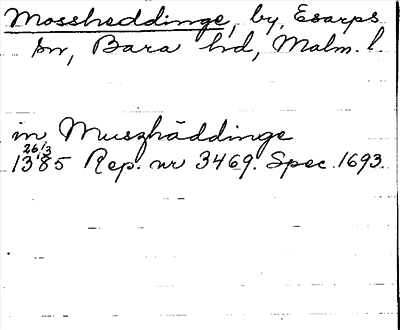 Mossheddinge, by, Esarps
sn, Bara hd, Malm. l.
in Muszhäddinge
26/3
1385 Rep. nr 3469. Spec. 1693.